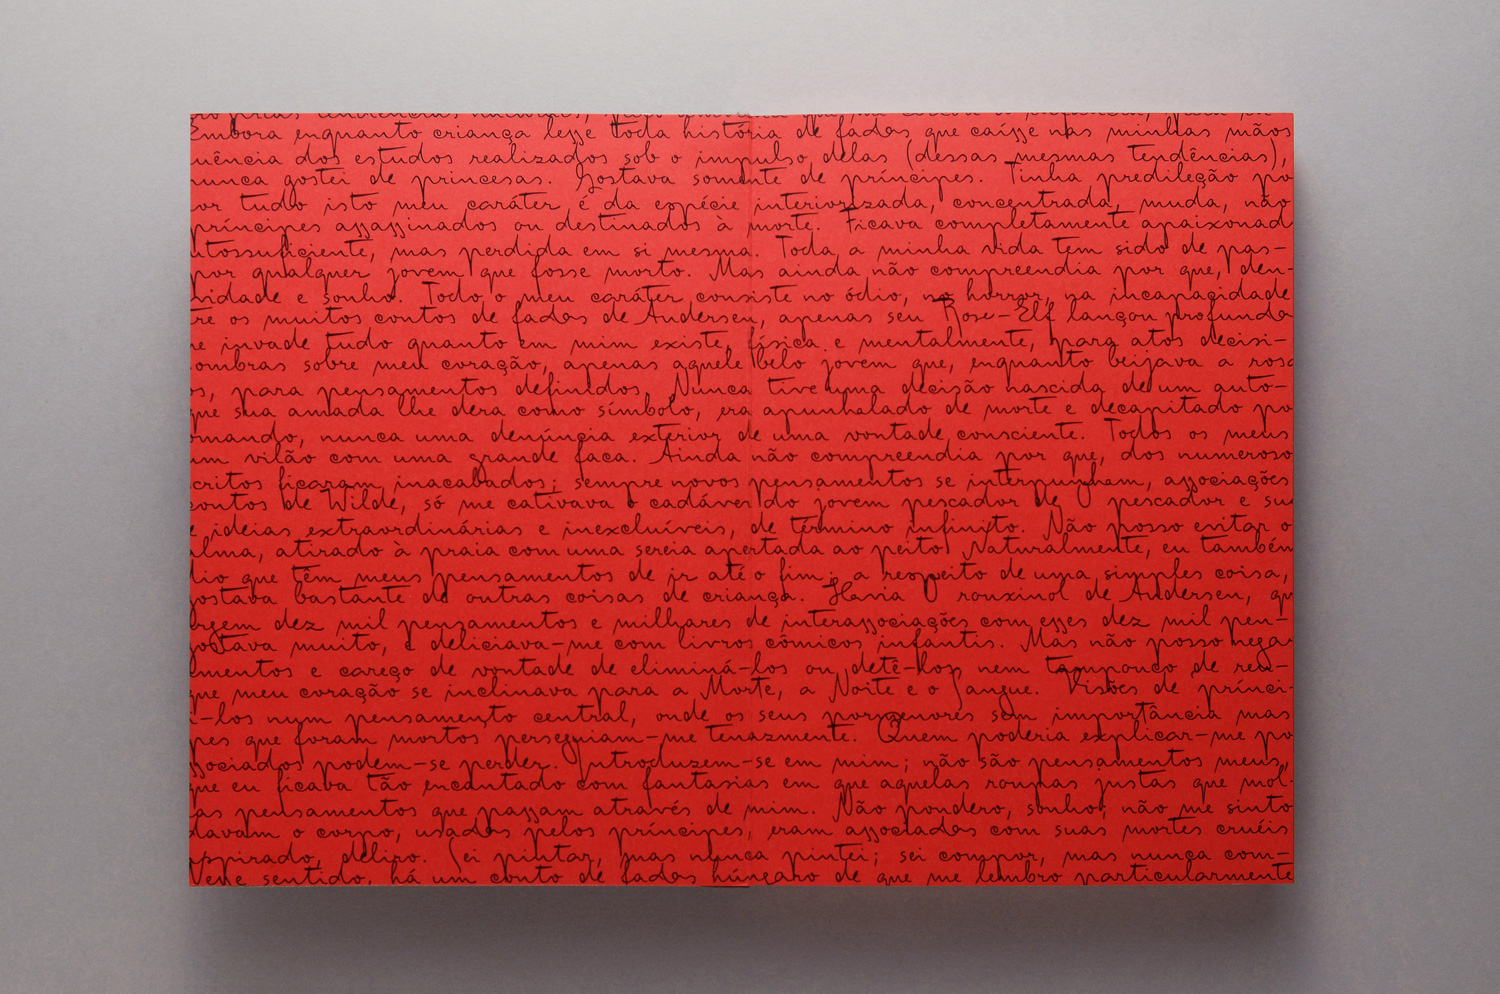 Embora enquanto criança lesse toda história de fadas que caísse nas minhas mãos
uência dos estudos realizados sob o impulso delas (dessas mesmas tendências),
nunca gostei de princesas. Gostava somente de príncipes. Tinha predileção po
or tudo isto meu caráter é da espécie interiorizada, concentrada, muda, não
príncipes assassinados ou destinados à morte. Ficava completamente apaixonad
utossuficiente, mas perdida em si mesma. Toda a minha vida tem sido de pas-
por qualquer jovem que fosse morto. Mas ainda não compreendia por que, den-
vidade e sonho. Todo o meu caráter consiste no ódio, no horror, na incapacidade
tre os muitos contos de fadas de Andersen, apenas seu Rose-Elf lançou profunda
e invade tudo quanto em mim existe, física e mentalmente, para atos decisi-
ombras sobre meu coração, apenas aquele belo jovem que, enquanto beijava a rosa
os, para pensamentos definidos. Nunca tive uma decisão nascida de um auto-
que sua amada lhe dera como símbolo, era apunhalado de morte e decapitado po
omando, nunca uma denúncia exterior de uma vontade consciente. Todos os meus
um vilão com uma grande faca. Ainda não compreendia por que, dos numeroso
critos ficaram inacabados; sempre novos pensamentos se interpunham, associações
contos de Wilde, só me cativava o cadáver do jovem pescador de pescador e su
e ideias extraordinárias e inexcluíveis, de término infinito. Não posso evitar o
alma, atirado à praia com uma sereia apertada ao peito. Naturalmente, eu também
dio que têm meus pensamentos de ir até o fim; a respeito de uma simples coisa,
gostava bastante de outras coisas de criança. Havia O rouxinol de Andersen, qu
urgem dez mil pensamentos e milhares de interassociações com esses dez mil pen-
gostava muito, e deliciava-me com livros cômicos infantis. Mas não posso negar
amentos e careço de vontade de eliminá-los ou detê-los, nem tampouco de reu-
que meu coração se inclinava para a Morte, a Noite e o Sangue. Visões de prínci-
i-los num pensamento central, onde os seus pormenores sem importância mas
pes que foram mortos perseguiam-me tenazmente. Quem poderia explicar-me po
ssociados podem-se perder. Introduzem-se em mim; não são pensamentos meus,
que eu ficava tão encantado com fantasias em que aquelas roupas justas que mol-
as pensamentos que passam através de mim. Não pondero, sonho; não me sinto
davam o corpo, usadas pelos príncipes, eram associadas com suas mortes cruéis
nspirado, deliro. Sei pintar, mas nunca pintei; sei compor, mas nunca com-
Neste sentido, há um conto de fadas húngaro de que me lembro particularmente